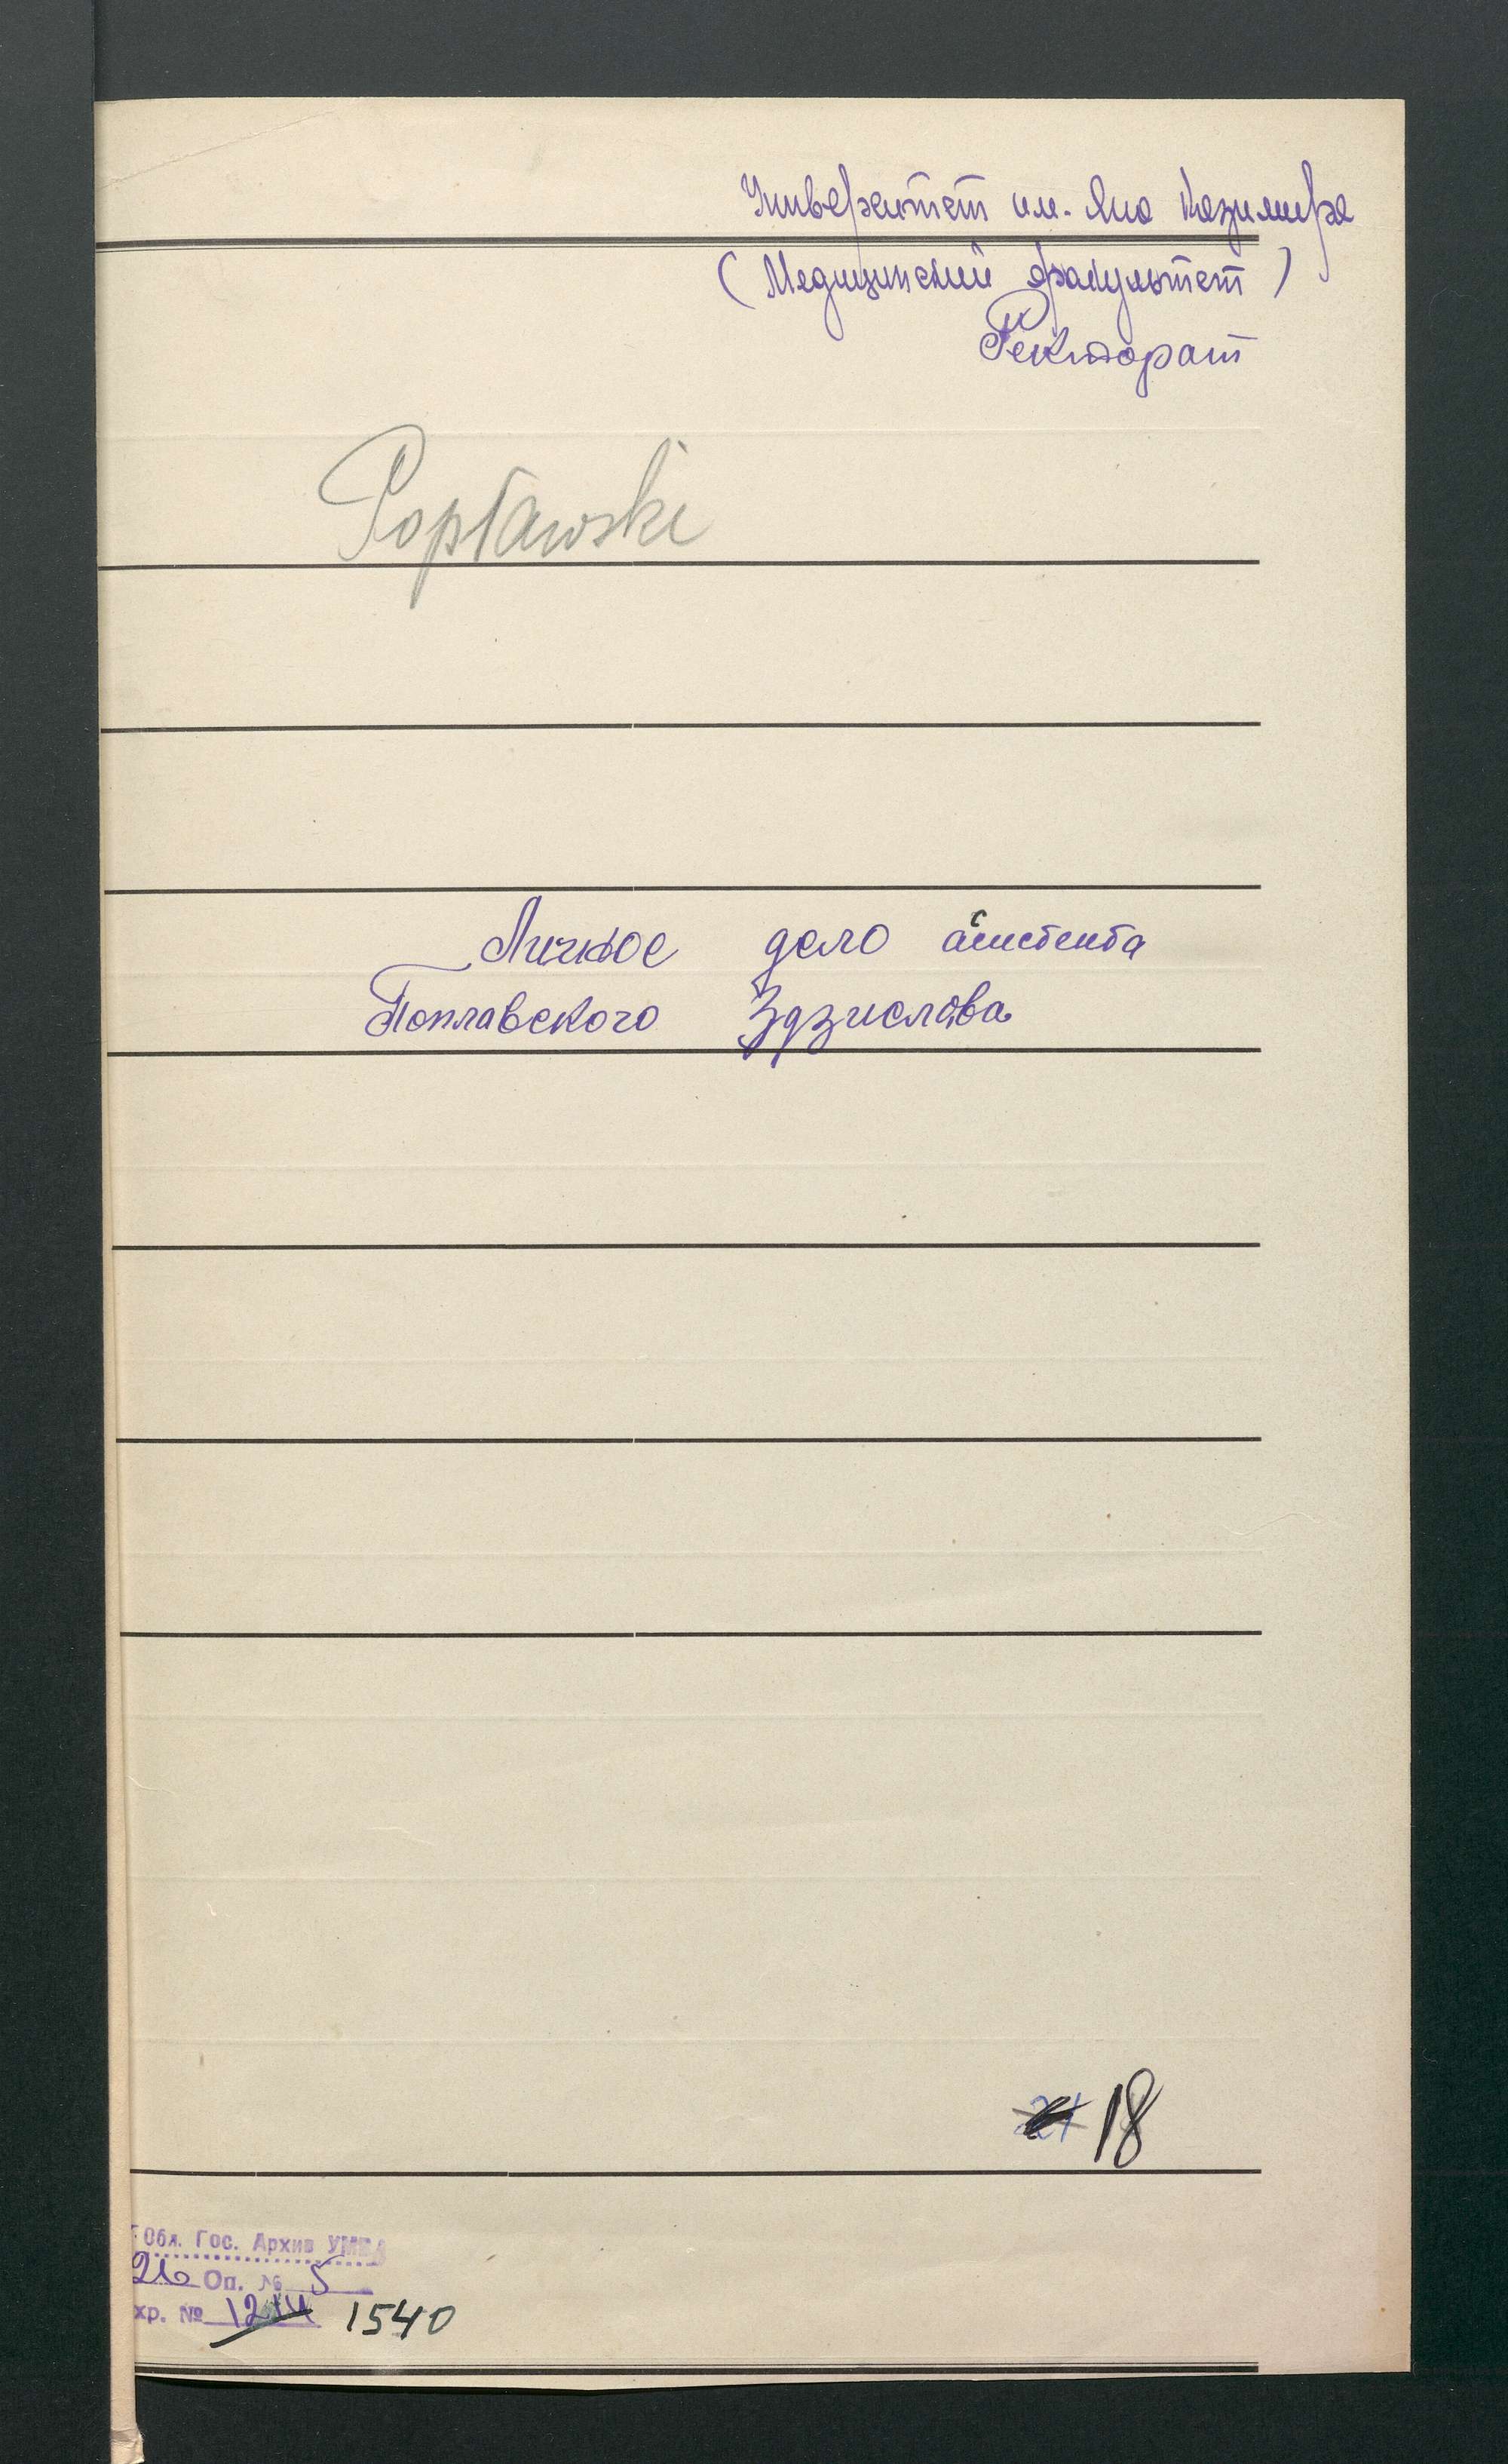 Университет им. Яна Казимира
(Медицинский факультет)
Ректорат
Popławski
Личное дело асистента
Поплавского Здзислава
21 18
Обл. Гос. Архив УМВД
26 Оп. № 5
хр. № 1540